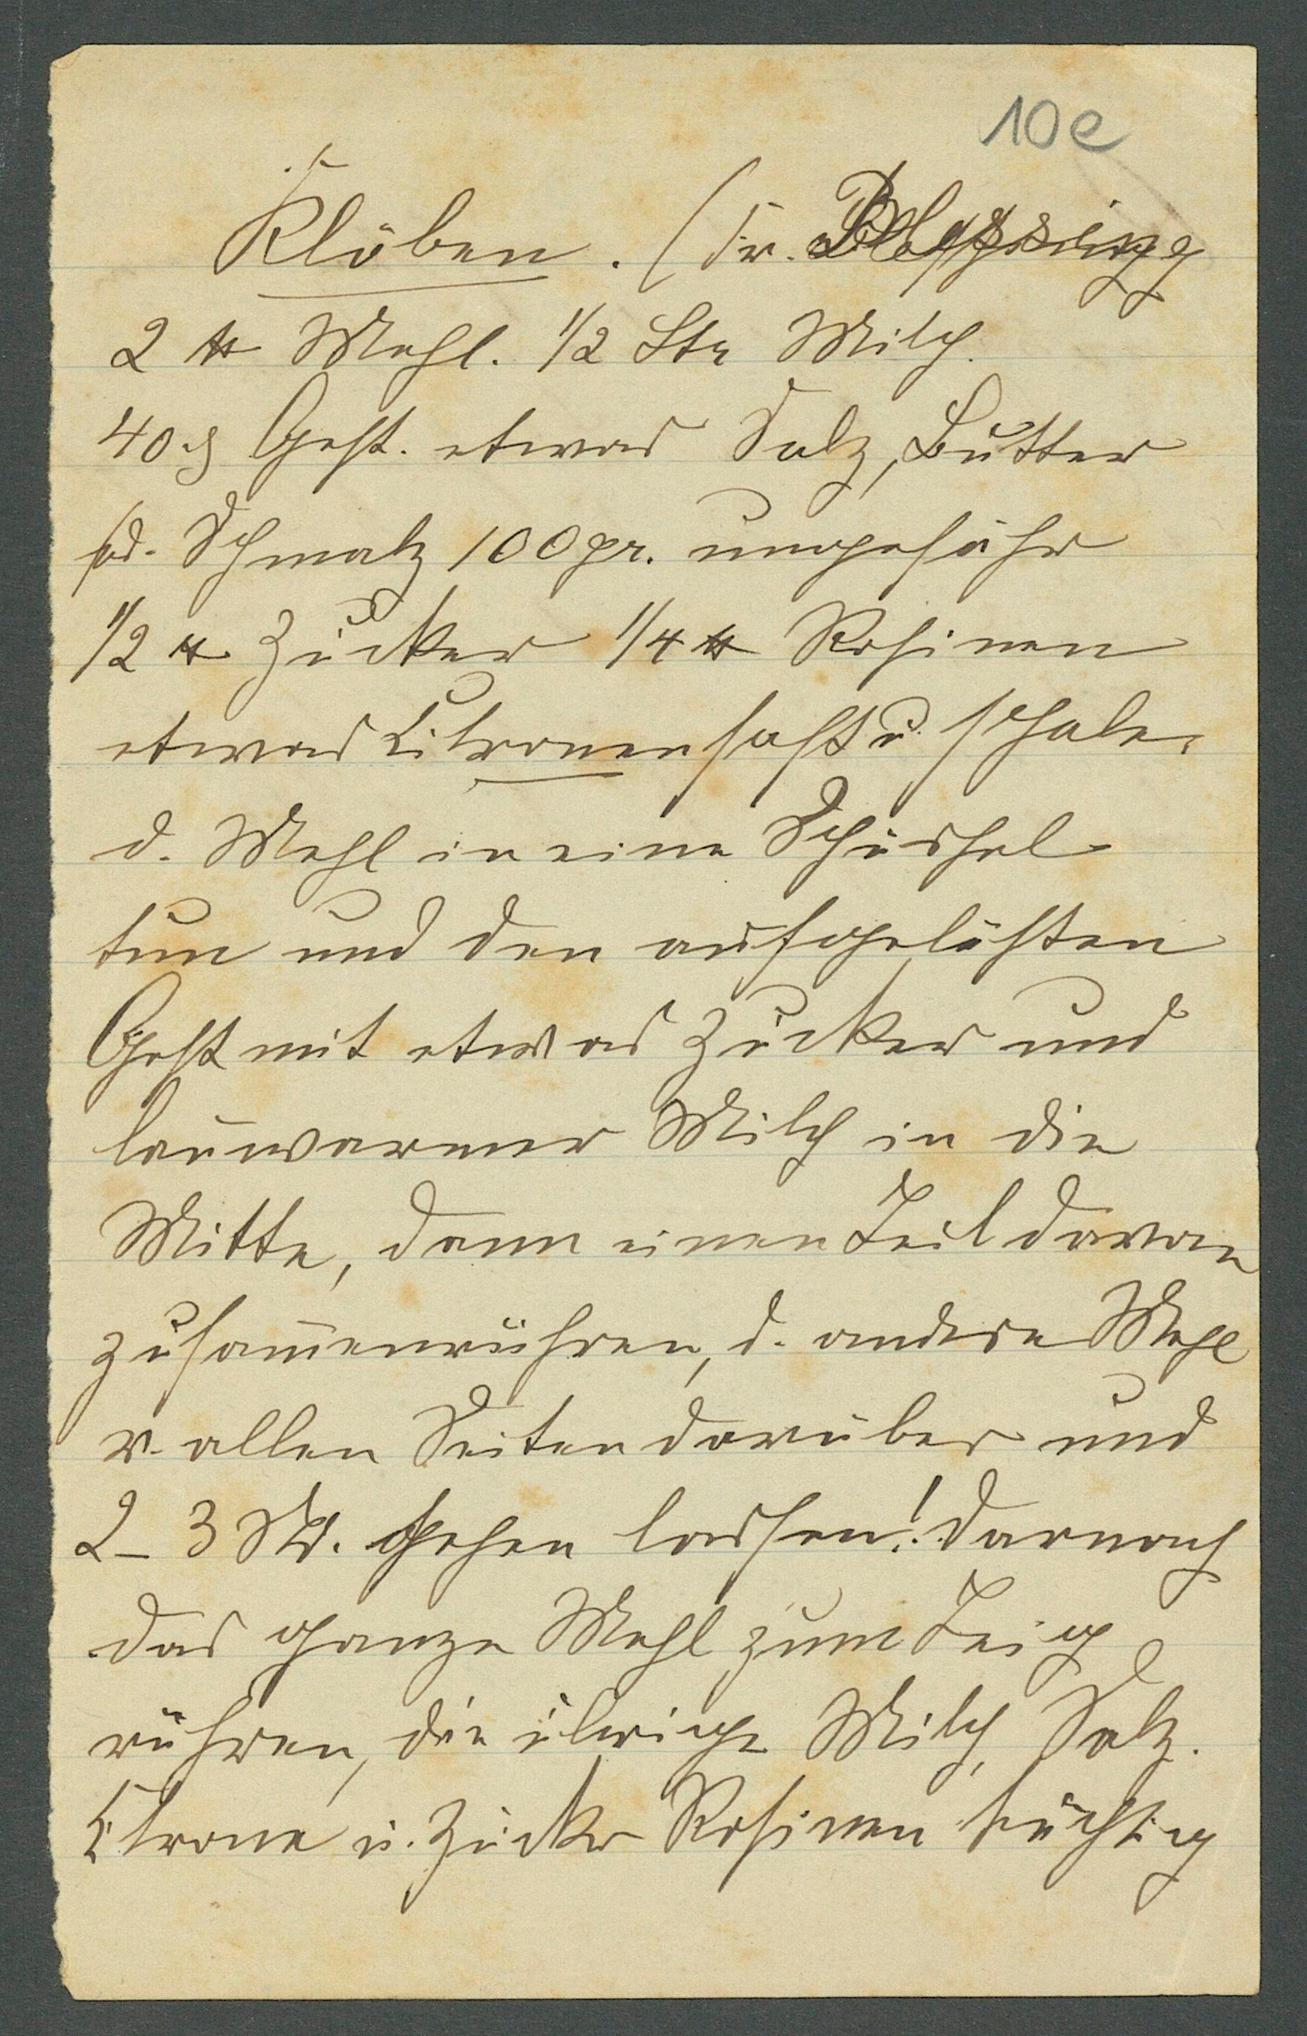 10e
Klöben. (Fr. Blessing
2 ℔ Mehl. 1/2 Ltr Milch.
40 g Gest. etwas Salz, Butter
od. Schmalz 100 gr. ungefähr
1/2 ℔ Zucker 1/4 ℔ Rosinen
etwas Citronensaft u. schale.
d. Mehl in eine Schüssel
tun und den aufgelösten
Gest mit etwas Zucker und
lauwarmer Milch in die
Mitte, dann einen Teil davon
zusam̄enrühren, d. andere Mehl
v. allen Seiten darüber und
2-3 Std. gehen lassen! Darnach
das ganze Mehl zum Teig
rühren, die übrige Milch, Salz.
Citrone u. Zucker Rosinen tüchtig